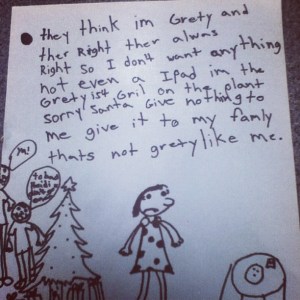 they think im Grety and
ther Right ther alwas
Right So I don't want anything
not even a Ipad im the
Gretyist Gril on the plant
sorry Santa Give nothing to
me give it to my famly
thats not grety like me.